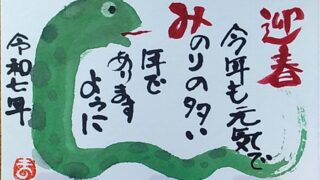 迎春
今年も元気で
みのりの多い
年で
あります
ように
令和七年